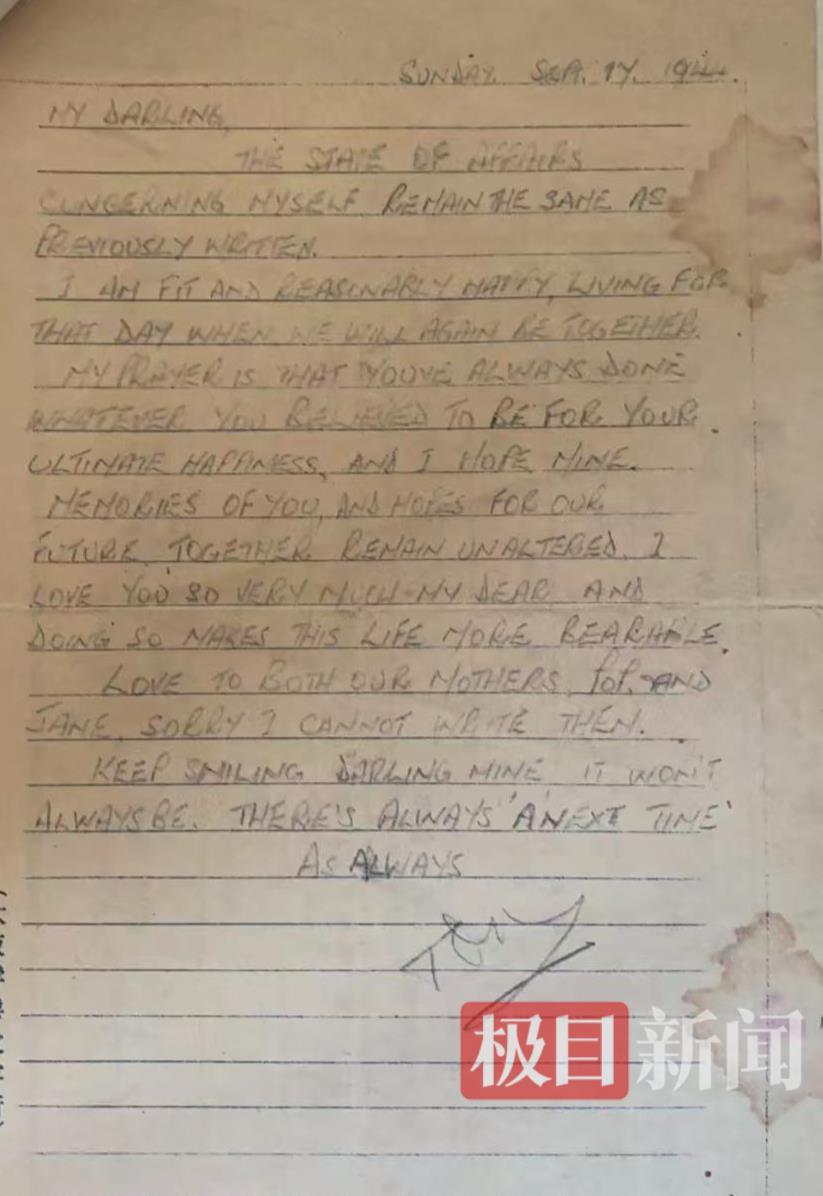 SUNDAY. SEP. 17. 1944.
MY DARLING,
THE STATE OF AFFAIRS
CONCERNING MYSELF REMAIN THE SAME AS
PREVIOUSLY WRITTEN.
I AM FIT AND REASONABLY HAPPY, LIVING FOR
THAT DAY WHEN WE WILL AGAIN BE TOGETHER.
MY PRAYER IS THAT YOUVE ALWAYS DONE
WHATEVER YOU BELIEVED TO BE FOR YOUR
ULTIMATE HAPPINESS, AND I HOPE MINE.
MEMORIES OF YOU, AND HOPES FOR OUR
FUTURE TOGETHER REMAIN UNALTERED. I
LOVE YOU SO VERY MUCH MY DEAR AND
DOING SO MAKES THIS LIFE MORE BEARABLE.
LOVE TO BOTH OUR MOTHERS, POP. AND
JANE, SORRY I CANNOT WRITE THEM.
KEEP SMILING DARLING MINE IT WON'T
ALWAYS BE. THERE'S ALWAYS 'A NEXT TIME'
AS ALWAYS
极目新闻